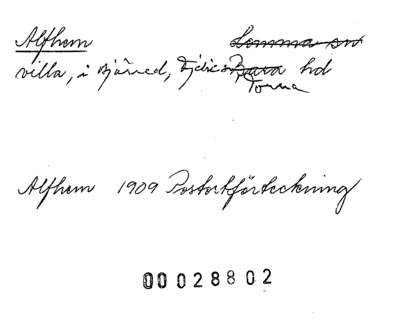 Alfhem Lomma sn
villa, i Bjärred, Fjelie sn, Bara hd
Torna
Alfhem 1909 Postortförteckning
00028802